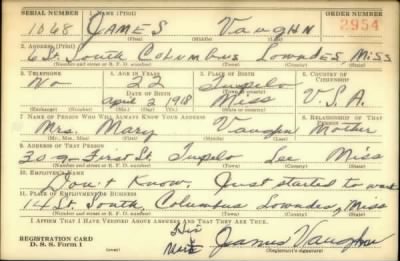 SERIAL NUMBER 1. NAME (Print) ORDER NUMBER
1068 JAMES VAUGHN 2954
(First) (Middle) (Last)
2. ADDRESS (Print)
6 St. South Columbus Lowndes, Miss
(Number and street or R. F. D. number) (Town) (County) (State)
3. TELEPHONE 4. AGE IN YEARS 5. PLACE OF BIRTH 6. COUNTRY OF CITIZENSHIP
No 22 Tupelo
DATE OF BIRTH (Town)
April 2 1918 Miss U.S.A.
(Exchange) (Number) (Mo.) (Day) (Yr.) (State or country)
7. NAME OF PERSON WHO WILL ALWAYS KNOW YOUR ADDRESS 8. RELATIONSHIP OF THAT PERSON
Mrs. Mary Vaughn Mother
(Mr., Mrs., Miss) (First) (Middle) (Last)
9. ADDRESS OF THAT PERSON
309 - First St. Tupelo Lee Miss
(Number and street or R. F. D. number) (Town) (County) (State)
10. EMPLOYER'S NAME
Don't Know. Just started to work
11. PLACE OF EMPLOYMENT OR BUSINESS
14 St. South, Columbus Lowndes, Miss
(Number and street or R. F. D. number) (Town) (County) (State)
I AFFIRM THAT I HAVE VERIFIED ABOVE ANSWERS AND THAT THEY ARE TRUE.
REGISTRATION CARD
D. S. S. Form 1
(over)
James Vaughn
(Registrant's signature)